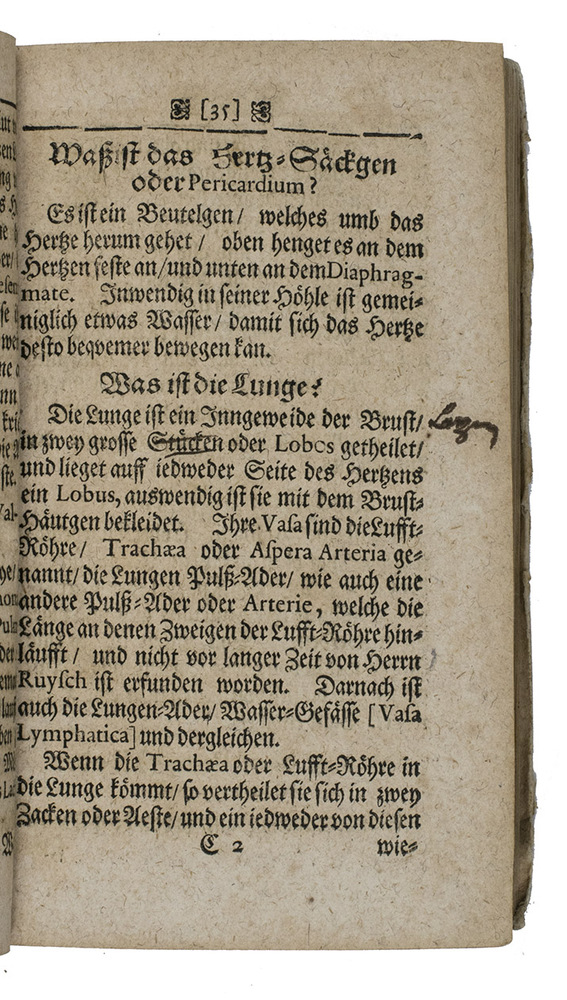 [35]
Waß ist das Hertz=Säckgen
oder Pericardium?
Es ist ein Beutelgen/ welches umb das
Hertze herum gehet/ oben henget es an dem
Hertzen feste an/und unten an dem Diaphrag-
mate. Inwendig in seiner Höhle ist gemei=
niglich etwas Wasser/ damit sich das Hertze
desto beqvemer bewegen kan.
Was ist die Lunge?
Die Lunge ist ein Inngeweide der Brust/
in zwey grosse Stücken oder Lobos getheilet/
und lieget auff iedweder Seite des Hertzens
ein Lobus, auswendig ist sie mit dem Brust=
Häutgen bekleidet. Ihre Vasa sind die Lufft=
Röhre/ Trachæa oder Aspera Arteria ge=
nannt/ die Lungen Pulß=Ader/ wie auch eine
andere Pulß=Ader oder Arterie, welche die
Länge an denen Zweigen der Lufft=Röhre hin=
läufft/ und nicht vor langer Zeit von Herrn
Ruysch ist erfunden worden. Darnach ist
auch die Lungen=Ader/ Wasser=Gefässe [Vasa
Lymphatica] und dergleichen.
Wenn die Trachæa oder Lufft=Röhre in
die Lunge kömmt/ so vertheilet sie sich in zwey
Zacken oder Aeste/ und ein iedweder von diesen
C 2 wie=